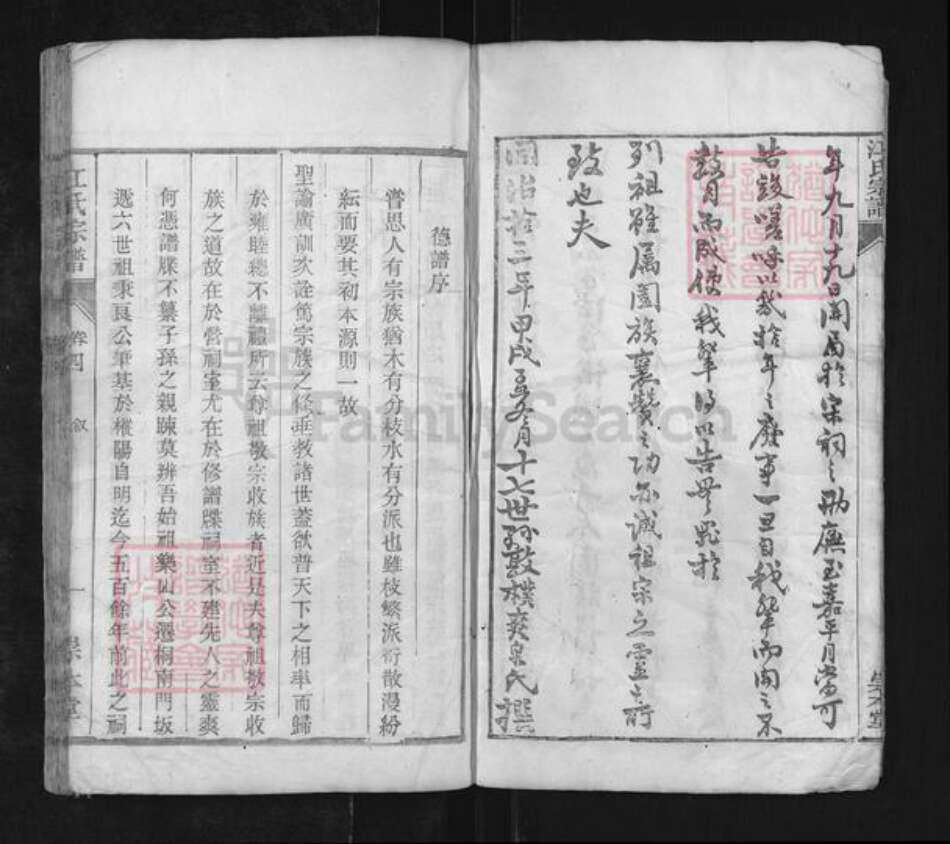 年九月十九日開局於宗祠之兩廡至嘉平月當可
告竣嗟呼以數拾年之廢事一旦自我輩而開之不
數月而成使我輩得以告無罪於
列祖雖屬闔族襄贊之功亦誠祖宗之靈之所
致也夫
同治拾三年甲戌 月十七世孫敦樸 泉氏撰
江氏宗譜
德譜序
嘗思人有宗族猶木有分枝水有分派也雖枝繁派衍散漫紛
紜而要其初本源則一故
聖諭廣訓次詮篤宗族之條垂教諸世蓋欲普天下之相率而歸
於雍睦總不離禮所云尊祖敬宗收族者近是夫尊祖敬宗收
族之道故在於營祠室尤在於修譜牒祠室不建先人之靈爽
何憑譜牒不纂子孫之親踈莫辨吾始祖樂山公遷桐南門坂
遞六世祖秉良公肇基於樅陽自明迄今五百餘年前此之祠
江氏宗譜
卷四
叙
一
崇本堂
FamilySearch